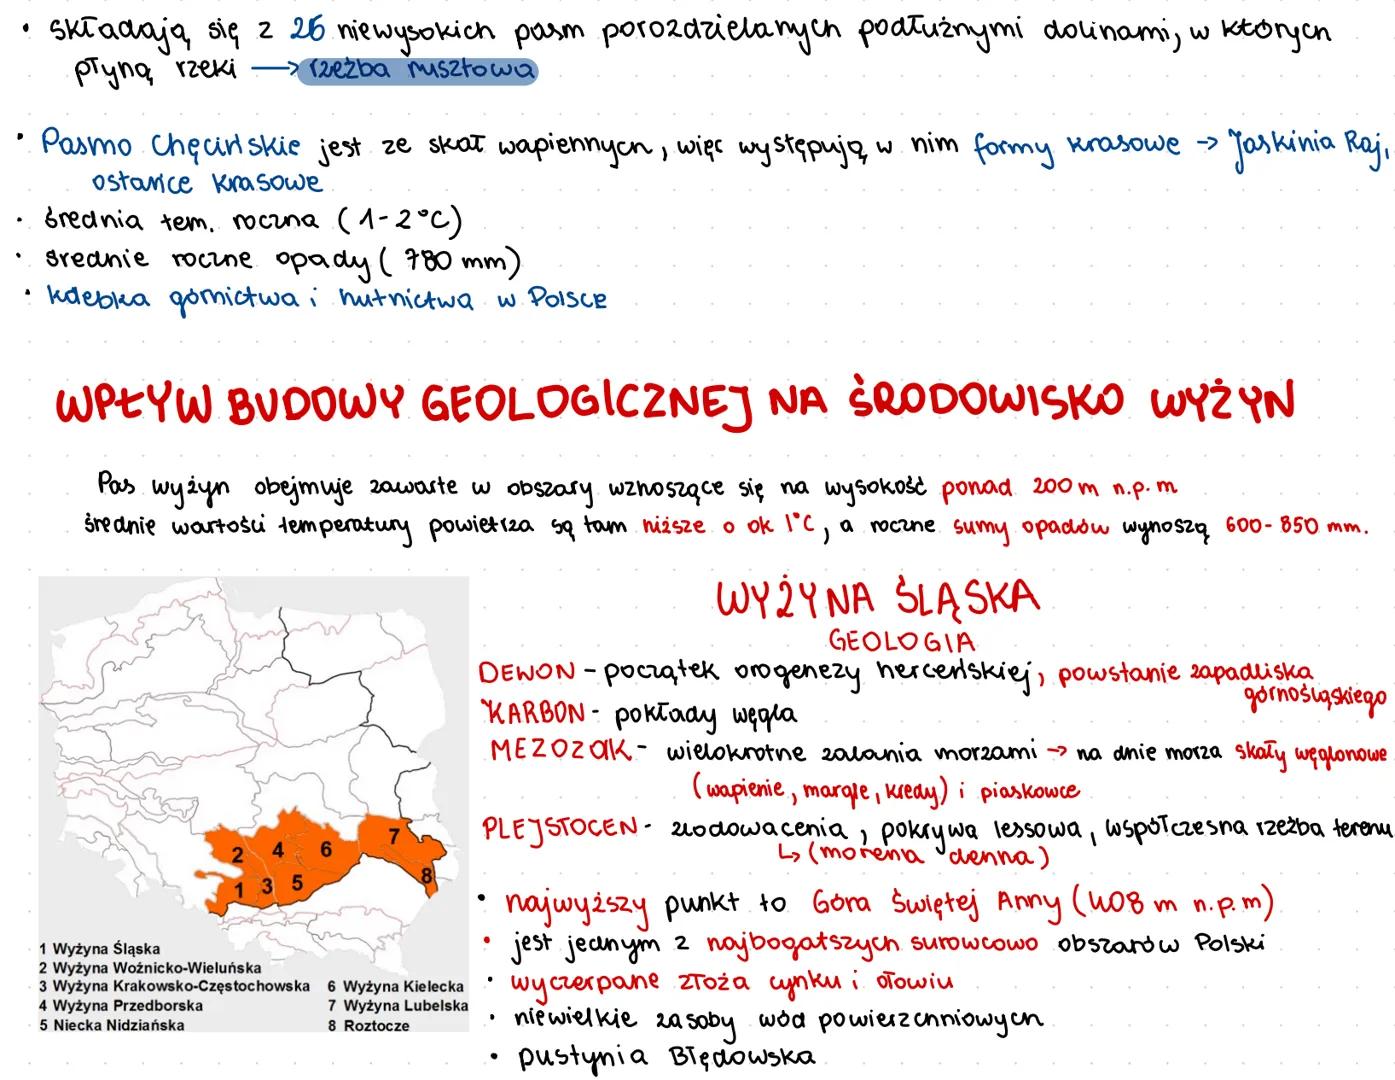 • składają się z 26 niewysokich pasm porozdzielanych podłużnymi dolinami, w których
płyną rzeki → rzeźba rusztowa
• Pasmo Chęcińskie jest ze skał wapiennych, więc występują w nim formy krasowe → Jaskinia Raj,
ostańce krasowe
• średnia tem. roczna (1-2°C)
• średnie roczne opady (780 mm)
• kolebka górnictwa i hutnictwa w Polsce
WPŁYW BUDOWY GEOLOGICZNEJ NA ŚRODOWISKO WYŻYN
Pas wyżyn obejmuje zawarte w obszary wznoszące się na wysokość ponad 200 m n.p.m
średnie wartości temperatury powietrza są tam niższe o ok 1°C, a roczne sumy opadów wynoszą 600-850 mm.
WYŻYNA ŚLĄSKA
GEOLOGIA
DEWON - początek orogenezy herceńskiej, powstanie zapadliska
górnośląskiego
KARBON - pokłady węgla
MEZOZOIK - wielokrotne zalania morzami → na dnie morza skały węglonowe
(wapienie, margle, kredy) i piaskowce
PLEJSTOCEN - zlodowacenia, pokrywa lessowa, współczesna rzeźba terenu
↳ (morena denna)
• najwyższy punkt to Góra Świętej Anny (408 m n.p.m)
• jest jednym z najbogatszych surowcowo obszarów Polski
• wyczerpane złoża cynku i ołowiu
• niewielkie zasoby wód powierzchniowych
• pustynia Błędowska
2 4 6 7
1 3 5 8
1 Wyżyna Śląska
2 Wyżyna Woźnicko-Wieluńska
3 Wyżyna Krakowsko-Częstochowska 6 Wyżyna Kielecka
4 Wyżyna Przedborska 7 Wyżyna Lubelska
5 Niecka Nidziańska 8 Roztocze